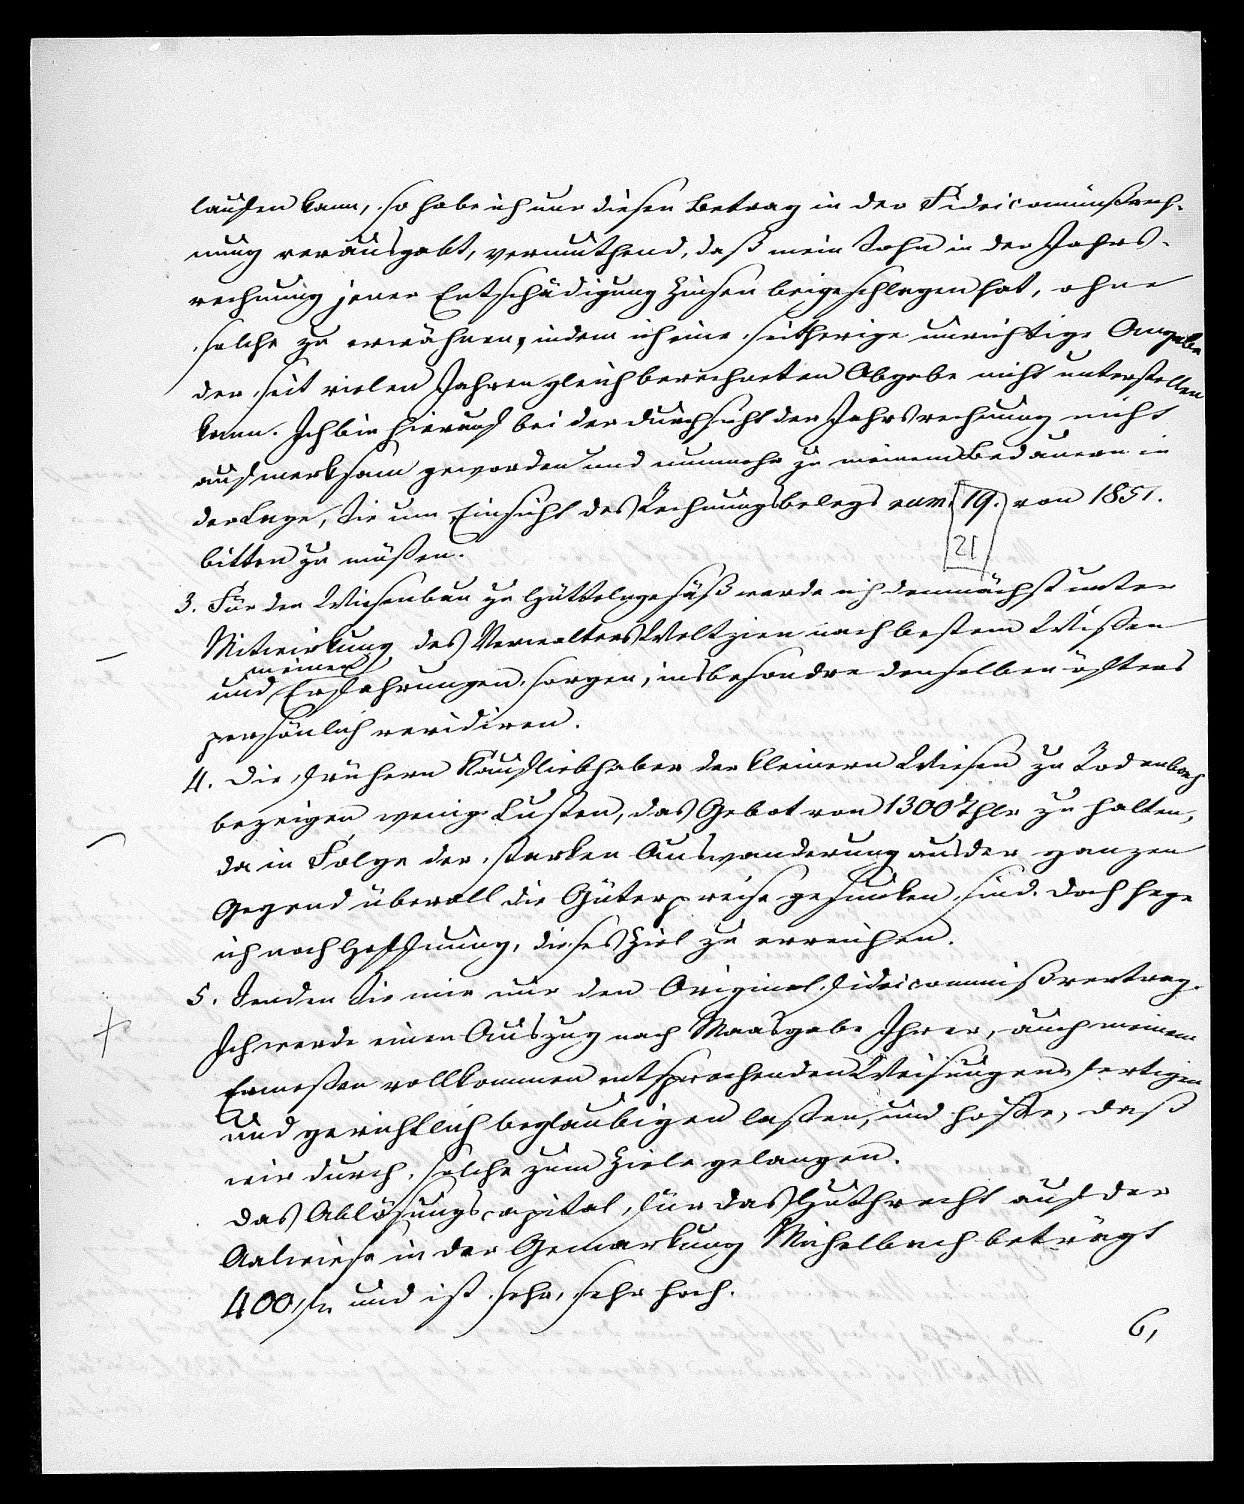 laufen kann, so habe ich nur diesen Betrag in der Fideicommißrech-
nung verausgabt, vermuthend, daß mein Sohn in der Jahrs-
rechnung jener Entschädigung Zinsen beigeschlagen hat, ohne
solche zu erwähnen, indem ich eine seitherige unrichtige Angabe
der seit vielen Jahren gleich berechneten Abgabe nicht unterstellen
kann. Ich bin hierauf bei der Durchsicht der Jahrsrechnung nicht
aufmerksam geworden und nunmehr zu meinem Bedauern in
der Lage, Sie um Einsicht des Rechnungsbelegs num. 19. von 1851.
21
bitten zu müßen.
3. Für den Wiesenbau zu Hüttelngesäß werde ich demnächst unter
Mitwirkung des Verwalters Weltzien nach bestem Wißen
meinen
und Erfahrungen sorgen, insbesondre denselben öfters
persönlich revidiren.
4. Die frühern Kaufliebhaber der kleinern Wiesen zu Rodenbach
bezeigen wenig Lusten, das Gebot von 1300 Thlr zu halten,
da in Folge der starken Auswanderung aus der ganzen
Gegend überall die Güterpreise gesunken sind. Doch hege
ich noch Hoffnung, dieses Ziel zu erreichen.
5. Senden Sie mir nur den Original Fideicommißvertrag.
Ich werde einen Auszug nach Maasgabe Ihrer, auch meinem
Ermeßen vollkommen entsprechenden Weisungen fertigen
und gerichtlich beglaubigen laßen, und hoffe, daß
wir durch solche zum Ziele gelangen.
Das Ablösungscapital für das Huthrecht auf der
Aalwiese in der Gemarkung Michelbach beträgt
400 fl und ist sehr, sehr hoch.
6,